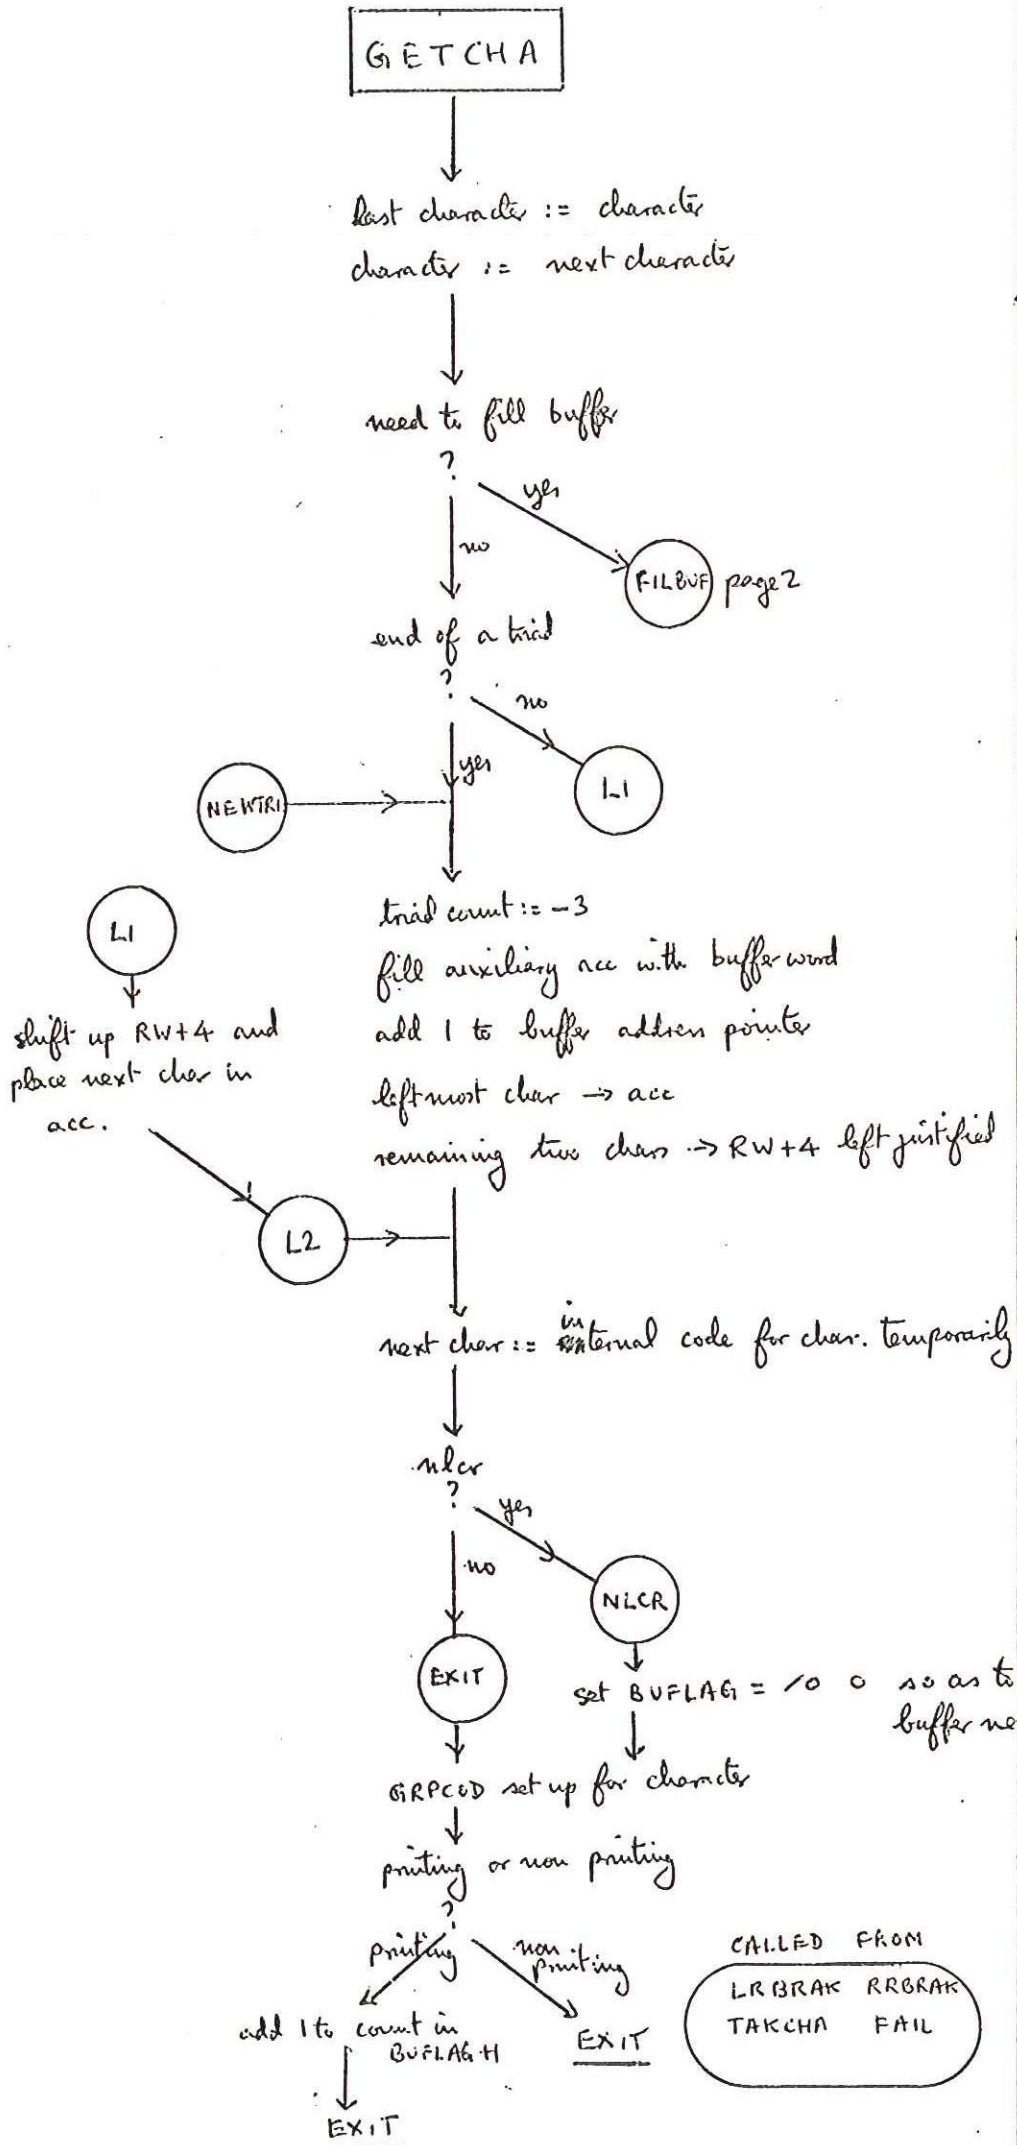 GETCHA
last character := character
character := next character
need to fill buffer
?
yes
no
FILBUF page 2
end of a triad
?
no
yes
L1
NEWTRI
triad count := -3
fill auxiliary acc with buffer word
add 1 to buffer address pointer
leftmost char → acc
remaining two chars → RW+4 left justified
L1
shift up RW+4 and
place next char in
acc.
L2
next char := internal code for char. temporarily
nlcr
?
yes
no
NLCR
EXIT
set BUFLAG = /0 0 so as to
buffer ne
GRPCOD set up for character
printing or non printing
?
printing
non
printing
add 1 to count in
EXIT
EXIT
CALLED FROM
LRBRAK RRBRAK
TAKCHA FAIL